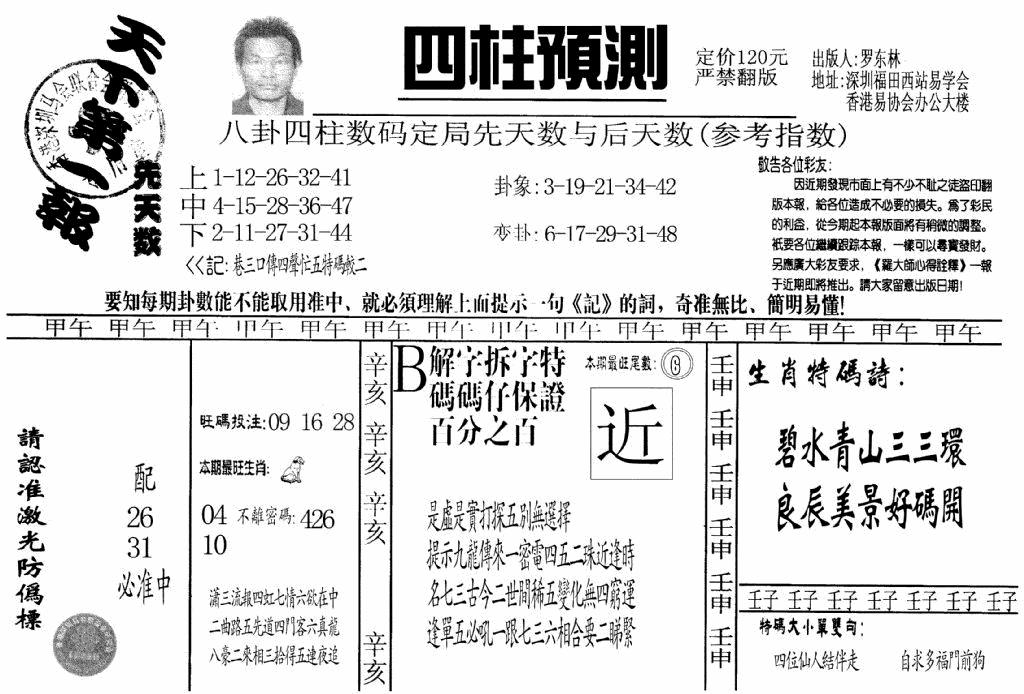 天下第一報
四柱預測
定价120元
严禁翻版
出版人:罗东林
地址:深圳福田西站易学会
香港易协会办公大楼
八卦四柱数码定局先天数与后天数(参考指数)
先天数
上 1-12-26-32-41
中 4-15-28-36-47
下 2-11-27-31-44
<<記:巷三口傳四聲忙五特碼蛟二
卦象:3-19-21-34-42
变卦:6-17-29-31-48
敬告各位彩友:
因近期發現市面上有不少不耻之徒盜印翻
版本報,給各位造成不必要的損失。為了彩民
的利益,從今期起本報版面將有稍微的調整。
衹要各位繼續跟踪本報,一樣可以尋寶發財。
另應廣大彩友要求,《羅大師心得詮釋》一報
于近期即將推出。請大家留意出版日期!
要知每期卦數能不能取用准中、就必須理解上面提示一句《記》的詞,奇准無比、簡明易懂!
甲午 甲午 甲午 甲午 甲午 甲午 甲午 甲午 甲午 甲午 甲午 甲午 甲午 甲午 甲午
請認准激光防僞標
配
26
31
必准中
旺碼投注:09 16 28
本期最旺生肖:
04 不離密碼:426
10
瀟三流報四虹七情六欲在中
二曲路五先道四門客六真龍
八豪二來相三拾得五連夜追
辛亥 辛亥 辛亥 辛亥
B解字拆字特
碼碼仔保證
百分之百
本期最旺尾數:
近
是虛是實打探五別無選擇
提示九龍傳來一密電四五二珠近逢時
名七三古今二世間稀五變化無四窮運
逢單五必吼一跟七三六相合要二睇緊
壬申 壬申 壬申 壬申 壬申 壬申
生肖特碼詩:
碧水青山三三環
良辰美景好碼開
壬子 壬子 壬子 壬子 壬子 壬子 壬子
特碼大小單雙句:
四位仙人結伴走 自求多福門前狗